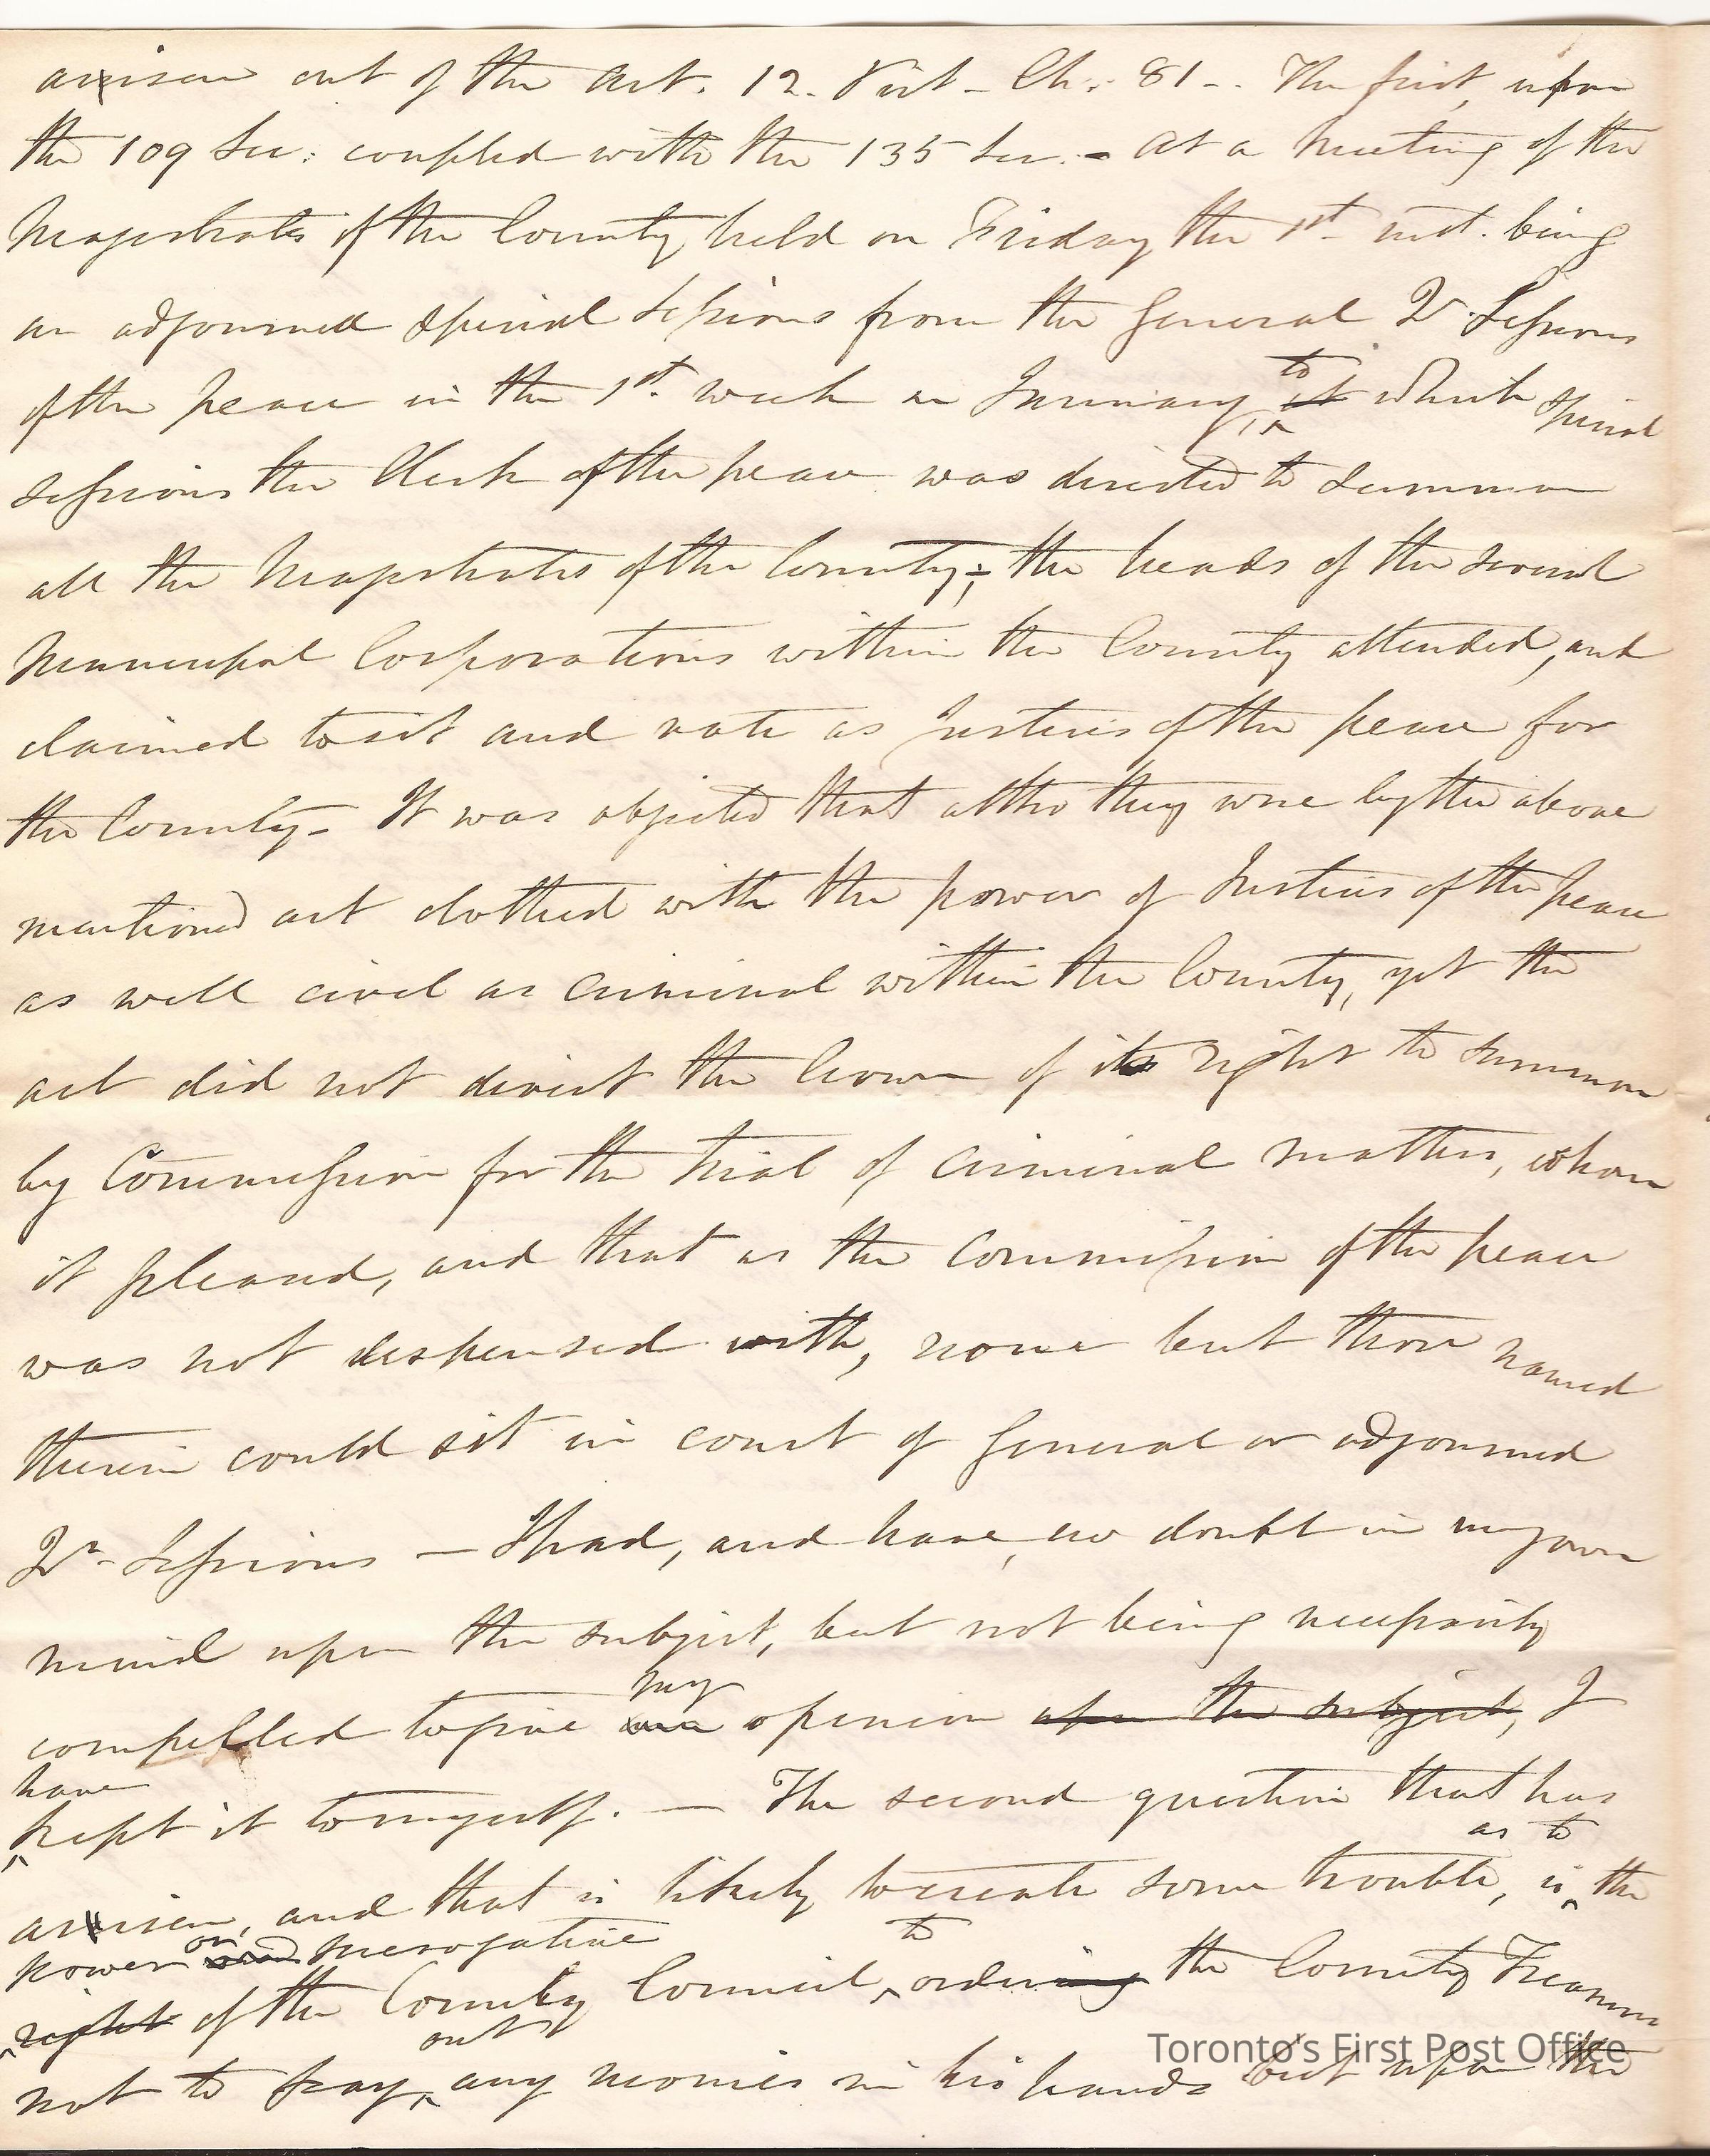 arisen out of the Act. 12. Vict - Ch: 81 -. The first, upon
the 109 Sec: coupled with the 135 Sec. - At a Meeting of the
Magistrates of the County held on Friday the 1st inst. being
an adjourned special Sessions from the General Qr. Sessions
of the peace in the 1st. week in January, to at which special
sessions the Clerk of the peace was directed to summon
all the Magistrates of the County; the heads of the several
Municipal Corporations within the County attended, and
claimed to sit and vote as Justices of the peace for
the County - It was objected that altho they were by the above
mentioned act clothed with the power of Justices of the peace
as well civil as criminal within the County, yet the
act did not divest the Crown of its right to summon
by Commission for the trial of criminal matters, whom
it pleased, and that as the Commission of the peace
was not dispensed with, none but those named
therein could sit in court of General or adjourned
Qr- Sessions — I had, and have, no doubt in my own
mind upon the subject, but not being necessarily
my
compelled to give opinion upon the subject, I
have
kept it to myself. — The second question that has
as to
arisen, and that is likely to create some trouble, is the
power or and prerogative to
right of the County Council, ordering the County Treasurer
out
not to pay any monies in his hands but upon the
Toronto's First Post Office